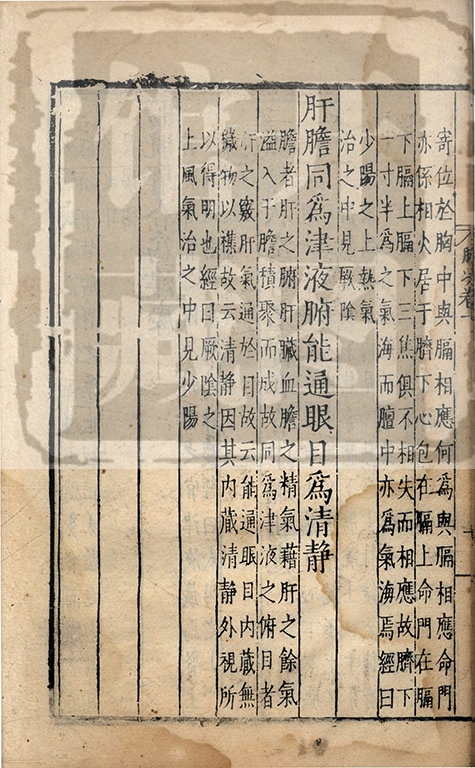 寄位於胸中與膈相應何爲與膈相應命門
亦係相火居于臍下心包在膈上命門在膈
下膈上膈下三焦俱不相失而相應故臍下
一寸半爲之氣海而膻中亦爲氣海焉經曰
少陽之上熱氣
治之中見厥陰
肝膽同爲津液腑能通眼目爲清静
膽者肝之腑肝臟血膽之精氣藉肝之餘氣
溢入于膽積聚而成故同爲津液之俯目者
肝之竅肝氣通於目故云能通眼目内蔵無
穢物以襍故云清静因其内蔵清静外視所
以得明也經曰厥陰之
上風氣治之中見少陽